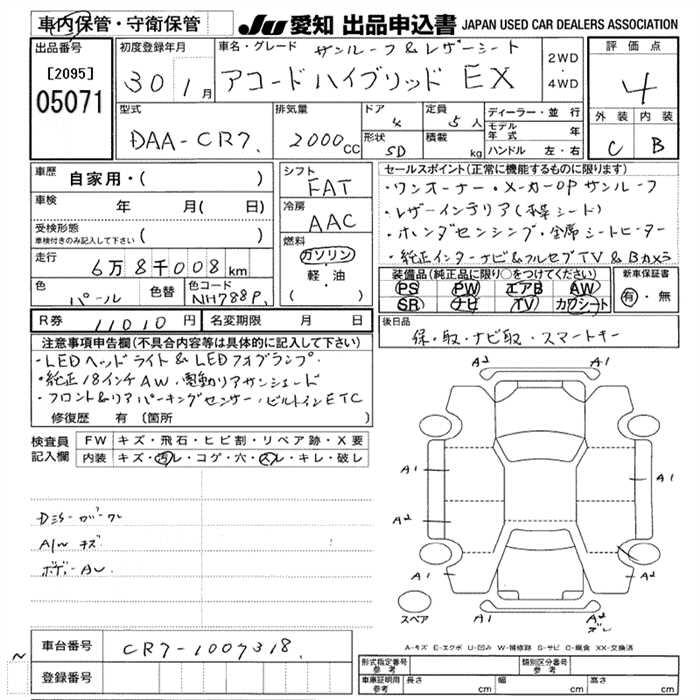 車内保管・守衛保管
JU 愛知 出品申込書 JAPAN USED CAR DEALERS ASSOCIATION
出品番号
[2095]
05071
初度登録年月
30 1月
車名・グレード サンルーフ&レザーシート
アコードハイブリッド EX
2WD
・
4WD
評価点
4
外装 内装
C B
型式
DAA-CR7.
排気量
2000 CC
ドア
4
定員
5人
形状
SD
積載
kg
ディーラー・並行
モデル年式 年
ハンドル 左・右
車歴
自家用・( )
車検 年 月( 日)
受検形態
車検付きのみ記入して下さい ( )
走行
6万8千008km
色
パール
色替
色コード
NH788P.
シフト
FAT
冷房
AAC
燃料
ガソリン
・
軽・油
( )
セールスポイント(正常に機能するものに限ります)
・ワンオーナー・メーカーOPサンルーフ
・レザーインテリア(本革シート)
・ホンダセンシング・全席シートヒーター
・純正インターナビ&フルセグTV&Bカメラ
装備品(純正品に限り○をつけてください)
PS PW エアB AW
SR ナビ TV カワシート
新車保証書
有・無
R券 11010円
名変期限 月 日
後日品
保・取・ナビ取・スマートキー
注意事項申告欄(不具合内容等は具体的に記入して下さい)
・LEDヘッドライト&LEDフォグランプ・
・純正18インチAW・電動リアサンシェード
・フロント&リアパーキングセンサー・ビルトインETC
修復歴 有(箇所 )
検査員
記入欄
FW キズ・飛石・ヒビ割・リペア跡・X要
内装 キズ・汚レ・コゲ・穴・スレ・キレ・破レ
A/W キズ
A2 A1
A1 A1
A2
A1 A2
A1 A2
スペア
A-キズ E-エクボ U-凹み W-補修跡 S-サビ C-腐食 XX-交換済
車台番号 CR7-1007318.
登録番号
形式指定番号
参考
類別区分番号
参考
車庫証明用
参考
長さ cm 幅 cm 高さ cm